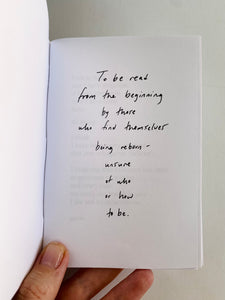 To be read
from the beginning
by those
who find themselves
being reborn-
unsure
of who
or how
to be.